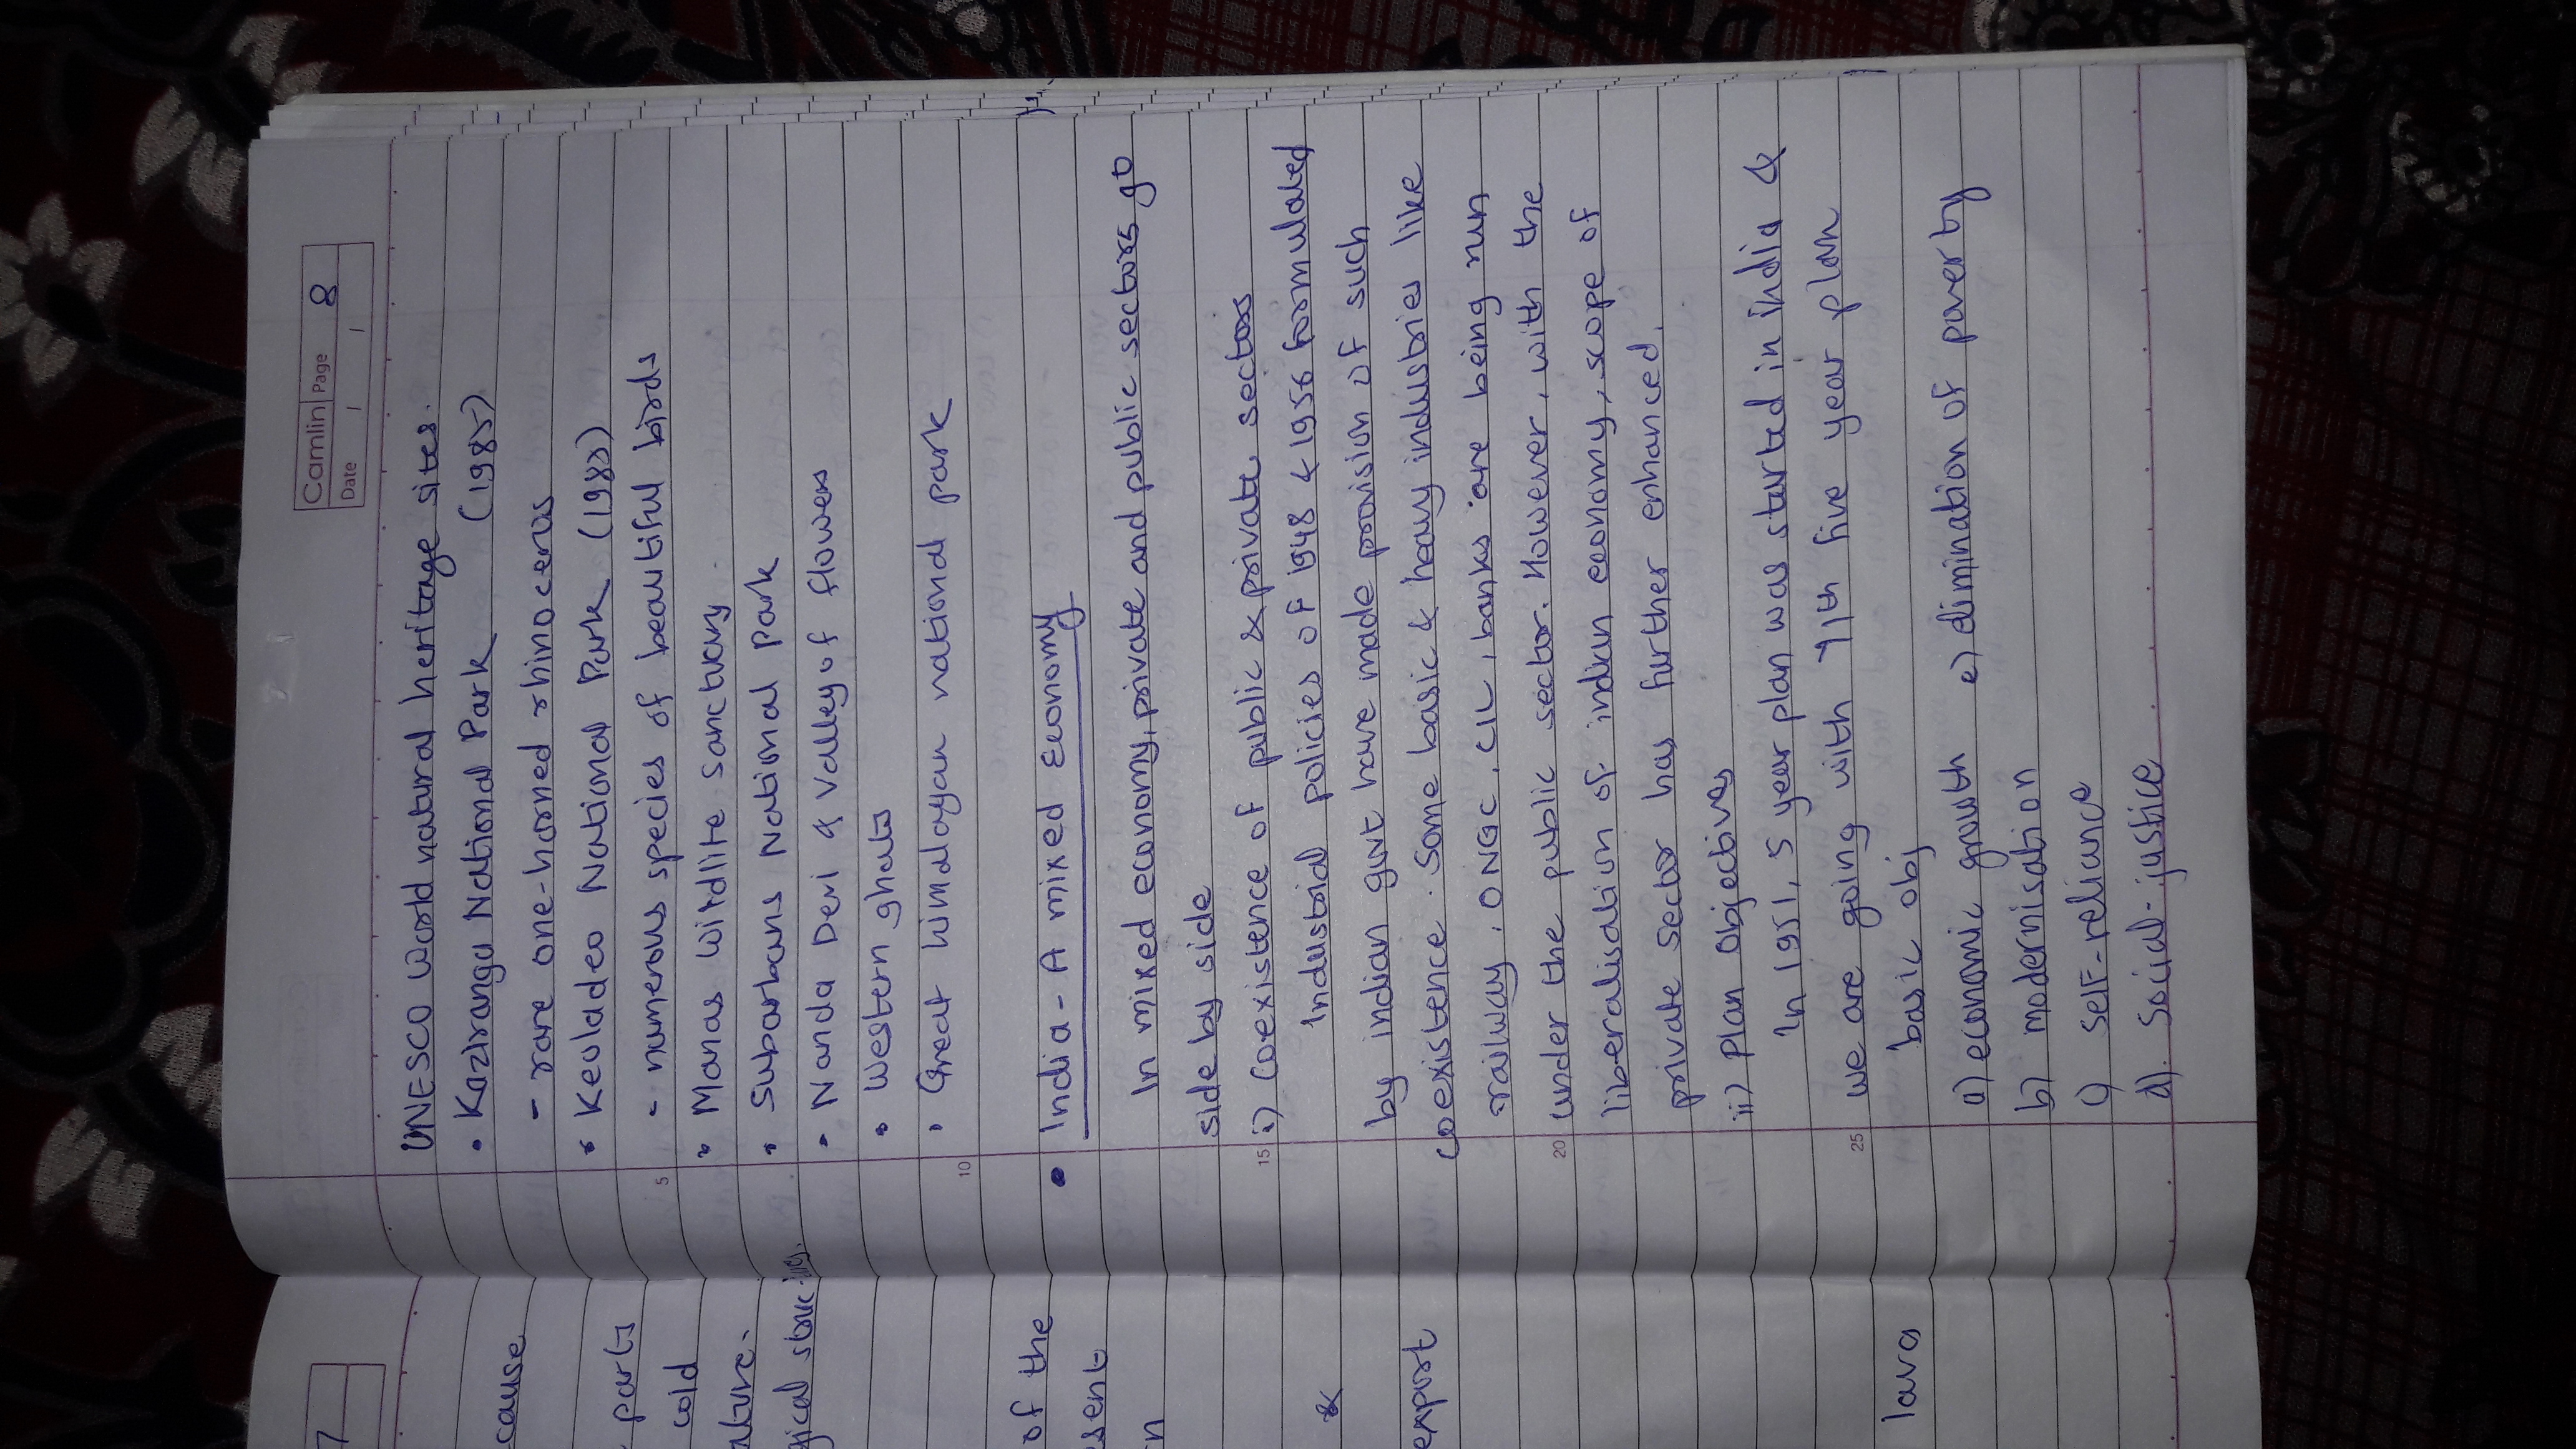 7
cause
parts
cold
ature.
gical struc
of the
sent
n
&
export
lava
Camlin Page 8
Date / /
UNESCO World natural heritage sites.
• Kaziranga National Park (1985)
- rare one-horned rhinoceros
• Keoladeo National Park (1985)
5 - numerous species of beautiful birds
• Manas Wildlife Sanctuary
• Subarbans National Park
• Nanda Devi & Valley of flowers
• Western ghats
• Great himalayan national park
10
• India - A mixed Economy
In mixed economy, private and public sectors go
side by side
15 i) Coexistence of public & private sectors
Industrial policies of 1948 & 1956 formulated
by indian govt have made provision of such
coexistence. Some basic & heavy industries like
railway, ONGC, CIL, banks are being run
20 under the public sector. However, with the
liberalisation of indian economy, scope of
private sector has further enhanced.
ii) Plan Objectives
In 1951, 5 year plan was started in india &
25 we are going with 11th five year plan
basic obj
a) economic growth e) elimination of poverty
b) modernisation
c) self-reliance
d). Social-justice